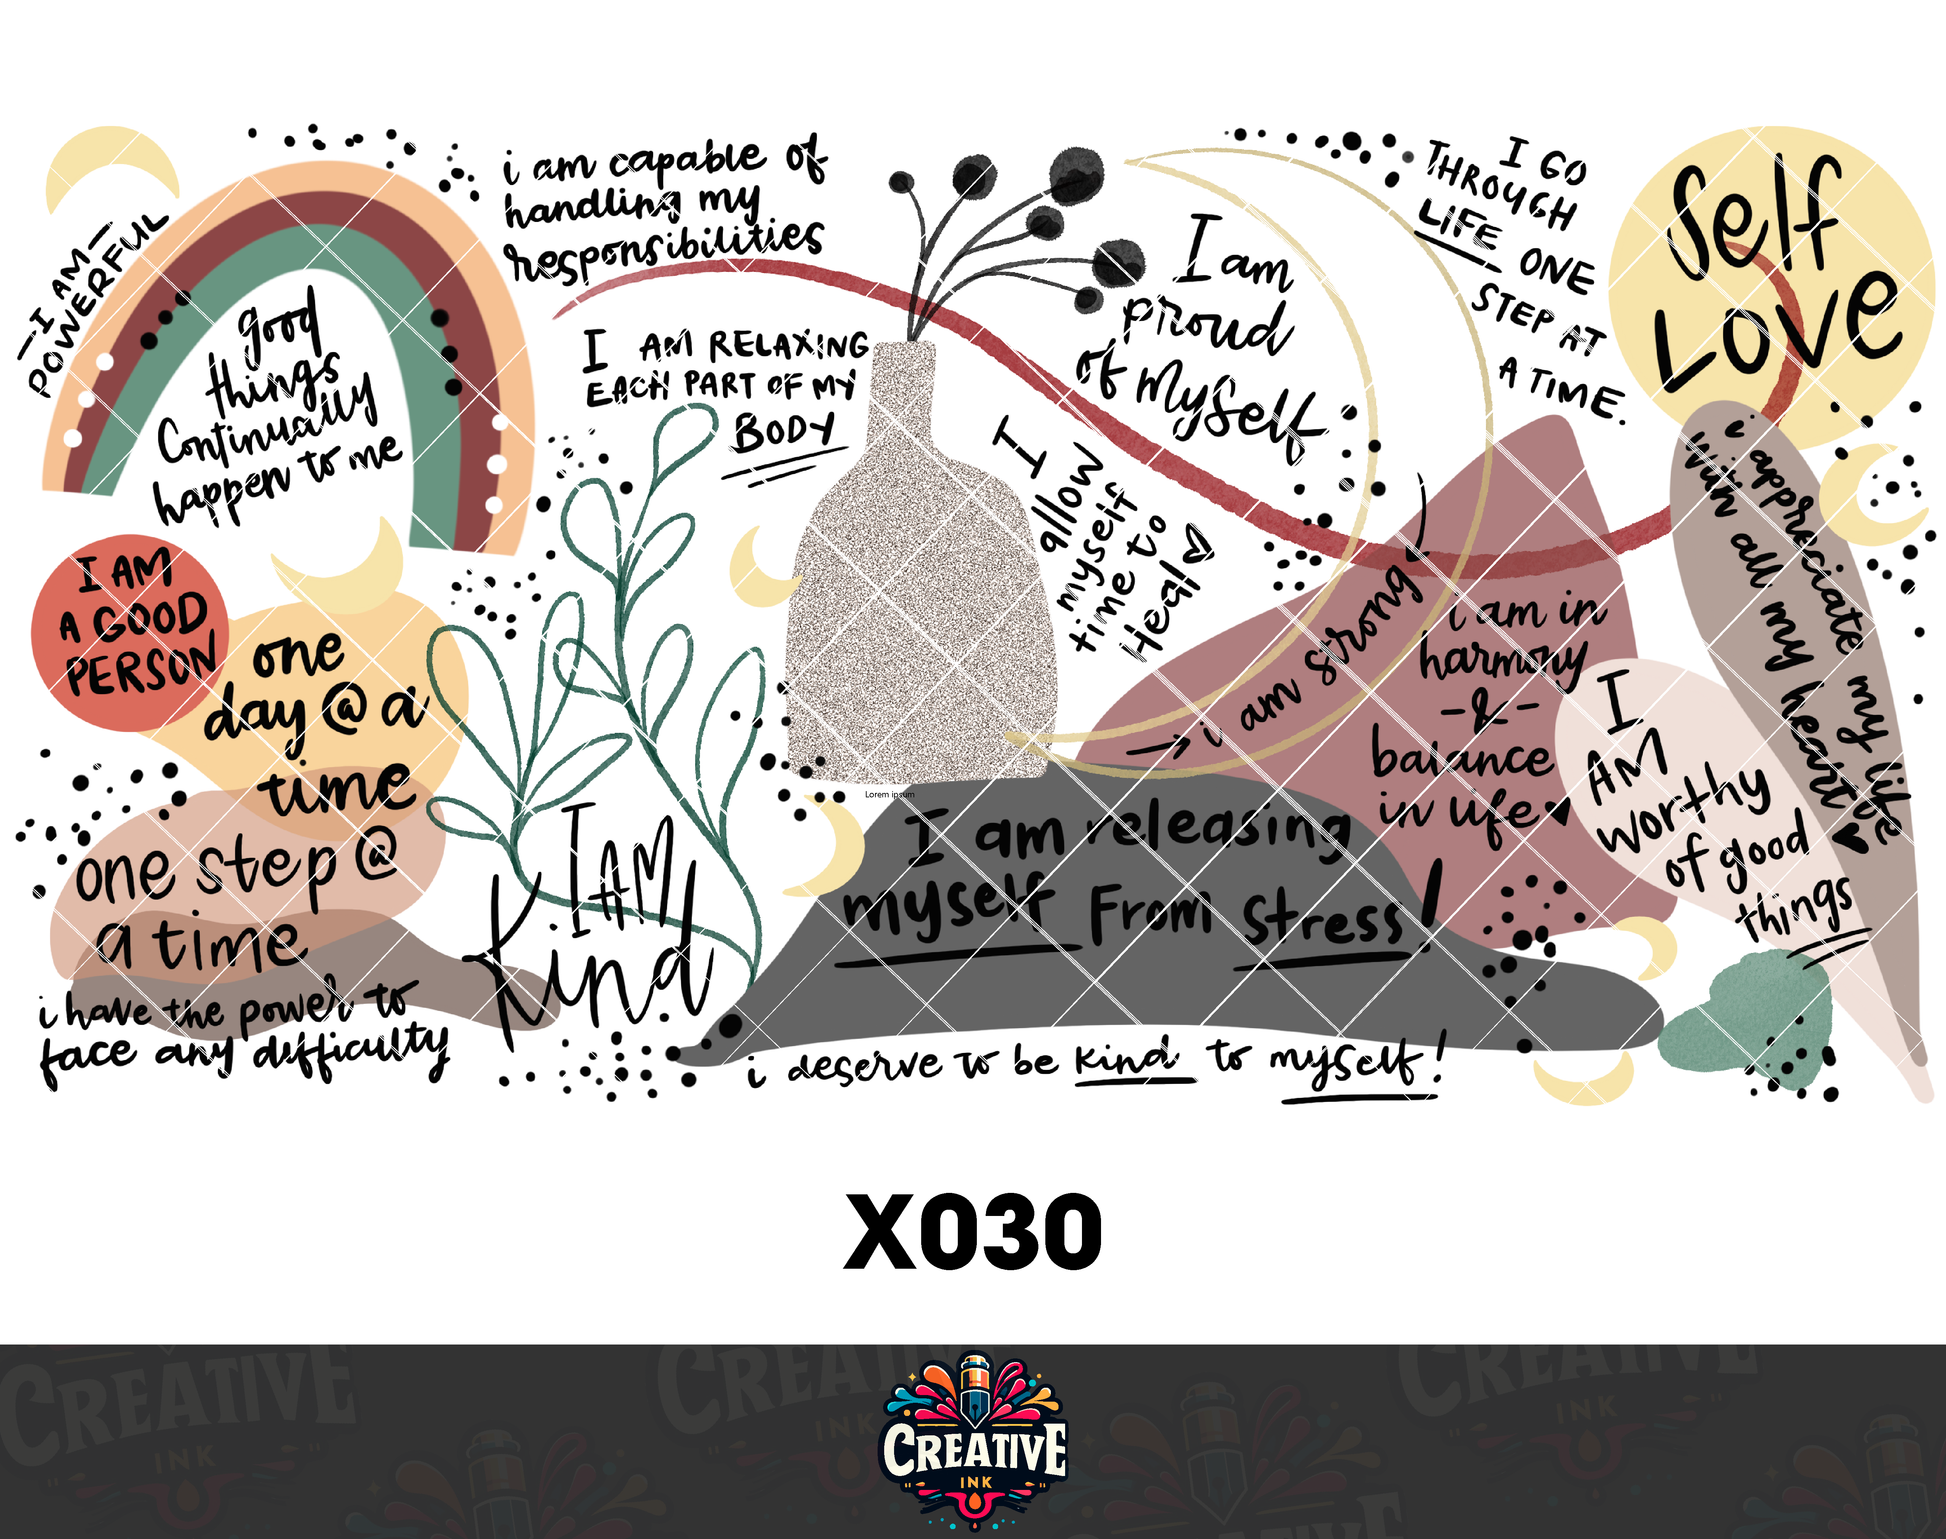 - I AM -
POWERFUL
good
things
Continually
happen to me
i am capable of
handling my
responsibilities
I AM RELAXING
EACH PART OF MY
BODY
I am
proud
of Myself
I GO
THROUGH
LIFE ONE
STEP AT
A TIME.
Self
LOVE
I
allow
myself
time to
Heal
I AM
A GOOD
PERSON
one
day @ a
time
one step @
a time
i have the power to
face any difficulty
I AM
Kind
Lorem ipsum
I am releasing
myself From Stress!
i deserve to be kind to myself!
i am strong
i am in
harmony
- & -
balance
in life
I
AM
worthy
of good
things
i appreciate my life
with all my heart
X030
CREATIVE
INK
CREATIVE
INK
CREATIVE
INK
CREATIVE
INK
CREATIVE
CREATIVE
CREATIVE